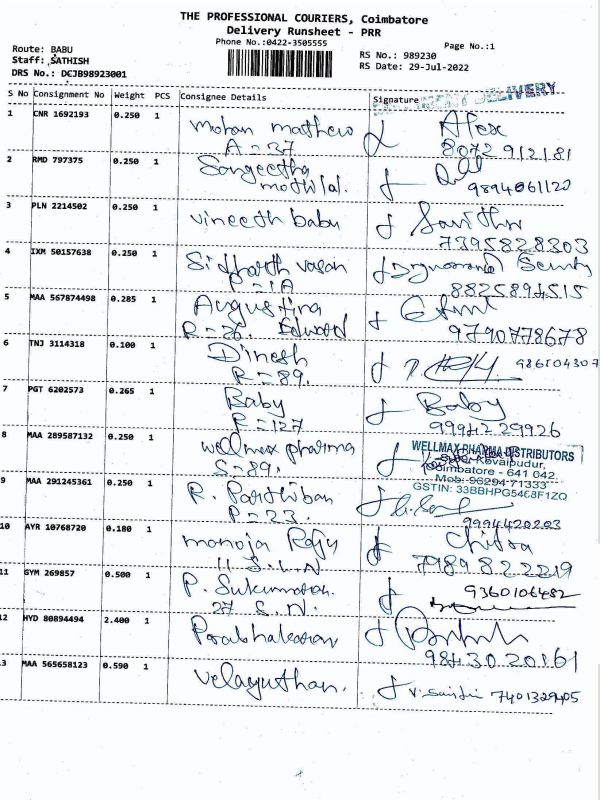 THE PROFESSIONAL COURIERS, Coimbatore
Delivery Runsheet - PRR
Phone No.:0422-3505555
Page No.:1
Route: BABU
Staff: SATHISH
DRS No.: DCJB98923001
RS No.: 989230
RS Date: 29-Jul-2022
S No Consignment No Weight PCS Consignee Details Signature
DELIVERY
1 CNR 1692193 0.250 1 Mohan mathew Alex
A-37 8072912181
2 RMD 797375 0.250 1 Sangeetha
mothilal. 9894061120
3 PLN 2214502 0.250 1 Vineeth babu Savithri
7395828303
4 IXM 50157638 0.250 1 Siddharth vasan Security
P-1A 8825894515
5 MAA 567874498 0.285 1 Augustina
R-26. Edward 9790778678
6 TNJ 3114318 0.100 1 Dinesh
R-89. 986104307
7 PGT 6202573 0.265 1 Baby Baby
R-127 9994229926
8 MAA 289587132 0.250 1 wellmax pharma
S-89.
WELLMAX PHARMA DISTRIBUTORS
Kovaipudur,
Coimbatore - 641 042.
Mob: 96294-71333
GSTIN: 33BBHPG5468F1ZQ
9 MAA 291245361 0.250 1 R. Parthiban
P-23. 9994420203
10 AYR 10768720 0.180 1 manoja Raju Chitra
11 S.L.N 7989822219
11 GYM 269857 0.500 1 P. Sukumaran 9360106482
27 S.N.
12 HYD 80894494 2.400 1 Prabhakaran
9843020161
13 MAA 565658123 0.590 1 Velayuthan. 7401329405